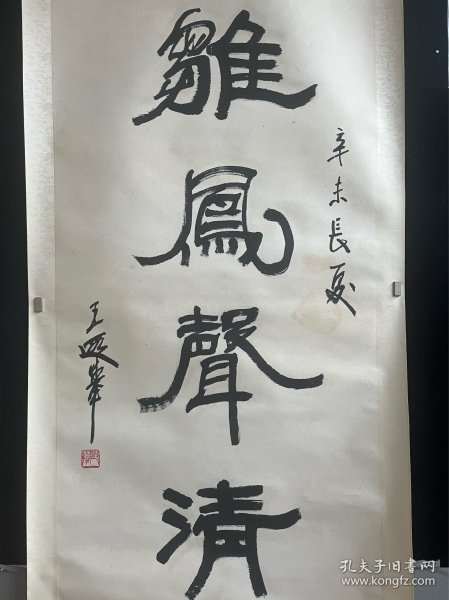 辛未長夏
雛鳳聲清
王遐舉
孔夫子旧书网
www.kongfz.com